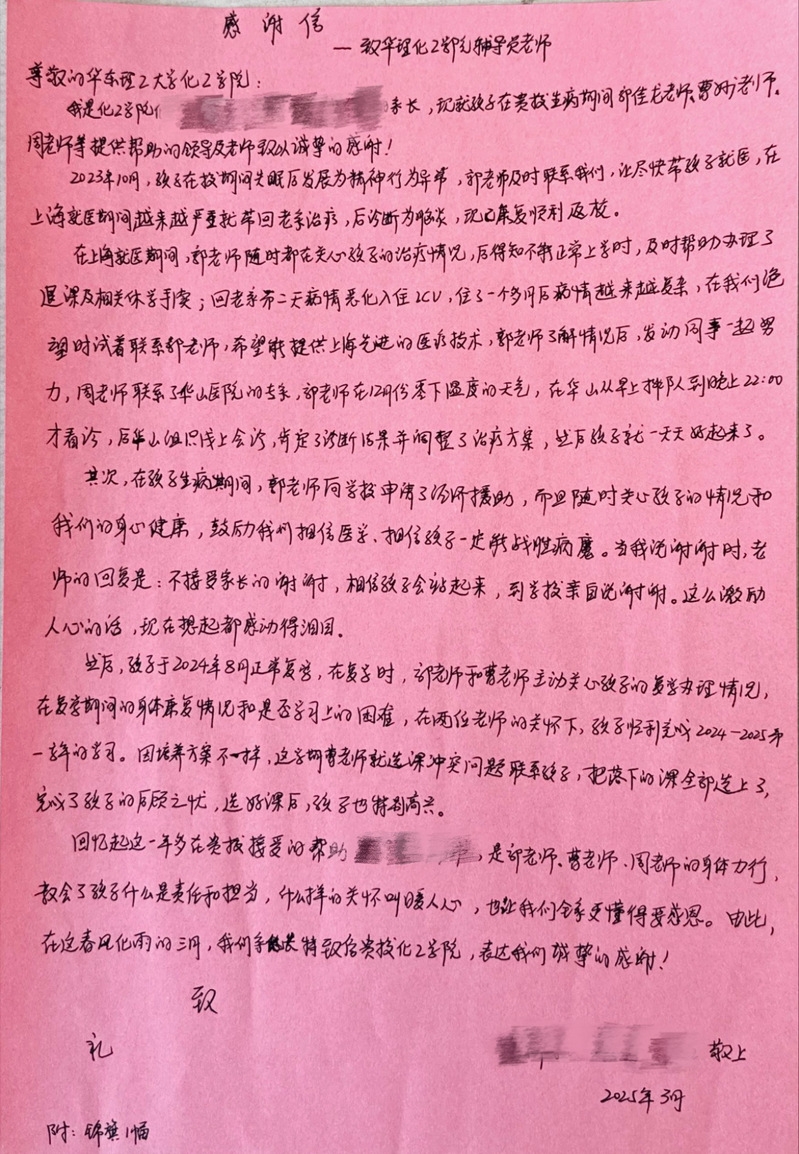 感谢信
—致华理化工学院辅导员老师
尊敬的华东理工大学化工学院：
我是化工学院 家长，现就孩子在贵校生病期间郭佳龙老师、曹妤老师、
周老师等提供帮助的领导及老师致以诚挚的感谢！
2023年10月，孩子在校期间失眠后发展为精神行为异常，郭老师及时联系我们，让尽快带孩子就医，在
上海就医期间越来越严重就带回老家治疗，后诊断为脑炎，现已康复顺利返校。
在上海就医期间，郭老师随时都在关心孩子的治疗情况，后得知不能正常上学时，及时帮助办理了
退课及相关休学手续；回老家第二天病情恶化入住ICU，住了一个多月后病情越来越复杂，在我们绝
望时试着联系郭老师，希望能提供上海先进的医疗技术，郭老师了解情况后，发动同事一起努
力，周老师联系了华山医院的专家，郭老师在12月份零下温度的天气，在华山从早上排队到晚上22:00
才看诊，后华山组织线上会诊，肯定了诊断结果并调整了治疗方案，然后孩子就一天天好起来了。
其次，在孩子生病期间，郭老师向学校申请了经济援助，而且随时关心孩子的情况和
我们的身心健康，鼓励我们相信医学、相信孩子一定能战胜病魔。当我说谢谢时，老
师的回复是：不接受家长的谢谢，相信孩子会站起来，到学校亲自说谢谢。这么激励
人心的话，现在想起都感动得泪目。
然后，孩子于2024年8月正常复学，在复学时，郭老师和曹老师主动关心孩子的复学办理情况，
在复学期间的身体康复情况和是否学习上的困难，在两位老师的关怀下，孩子顺利完成2024-2025第
一学年的学习。因培养方案不一样，这学期曹老师就选课冲突问题联系孩子，把落下的课全部选上了，
完成了孩子的后顾之忧，选好课后，孩子也特别高兴。
回忆起这一年多在贵校接受的帮助 ，是郭老师、曹老师、周老师的身体力行，
教会了孩子什么是责任和担当，什么样的关怀叫暖人心，也让我们全家更懂得要感恩。由此，
在这春风化雨的三月，我们 特致信贵校化工学院，表达我们诚挚的感谢！
致
礼
敬上
2025年3月
附：锦旗1幅